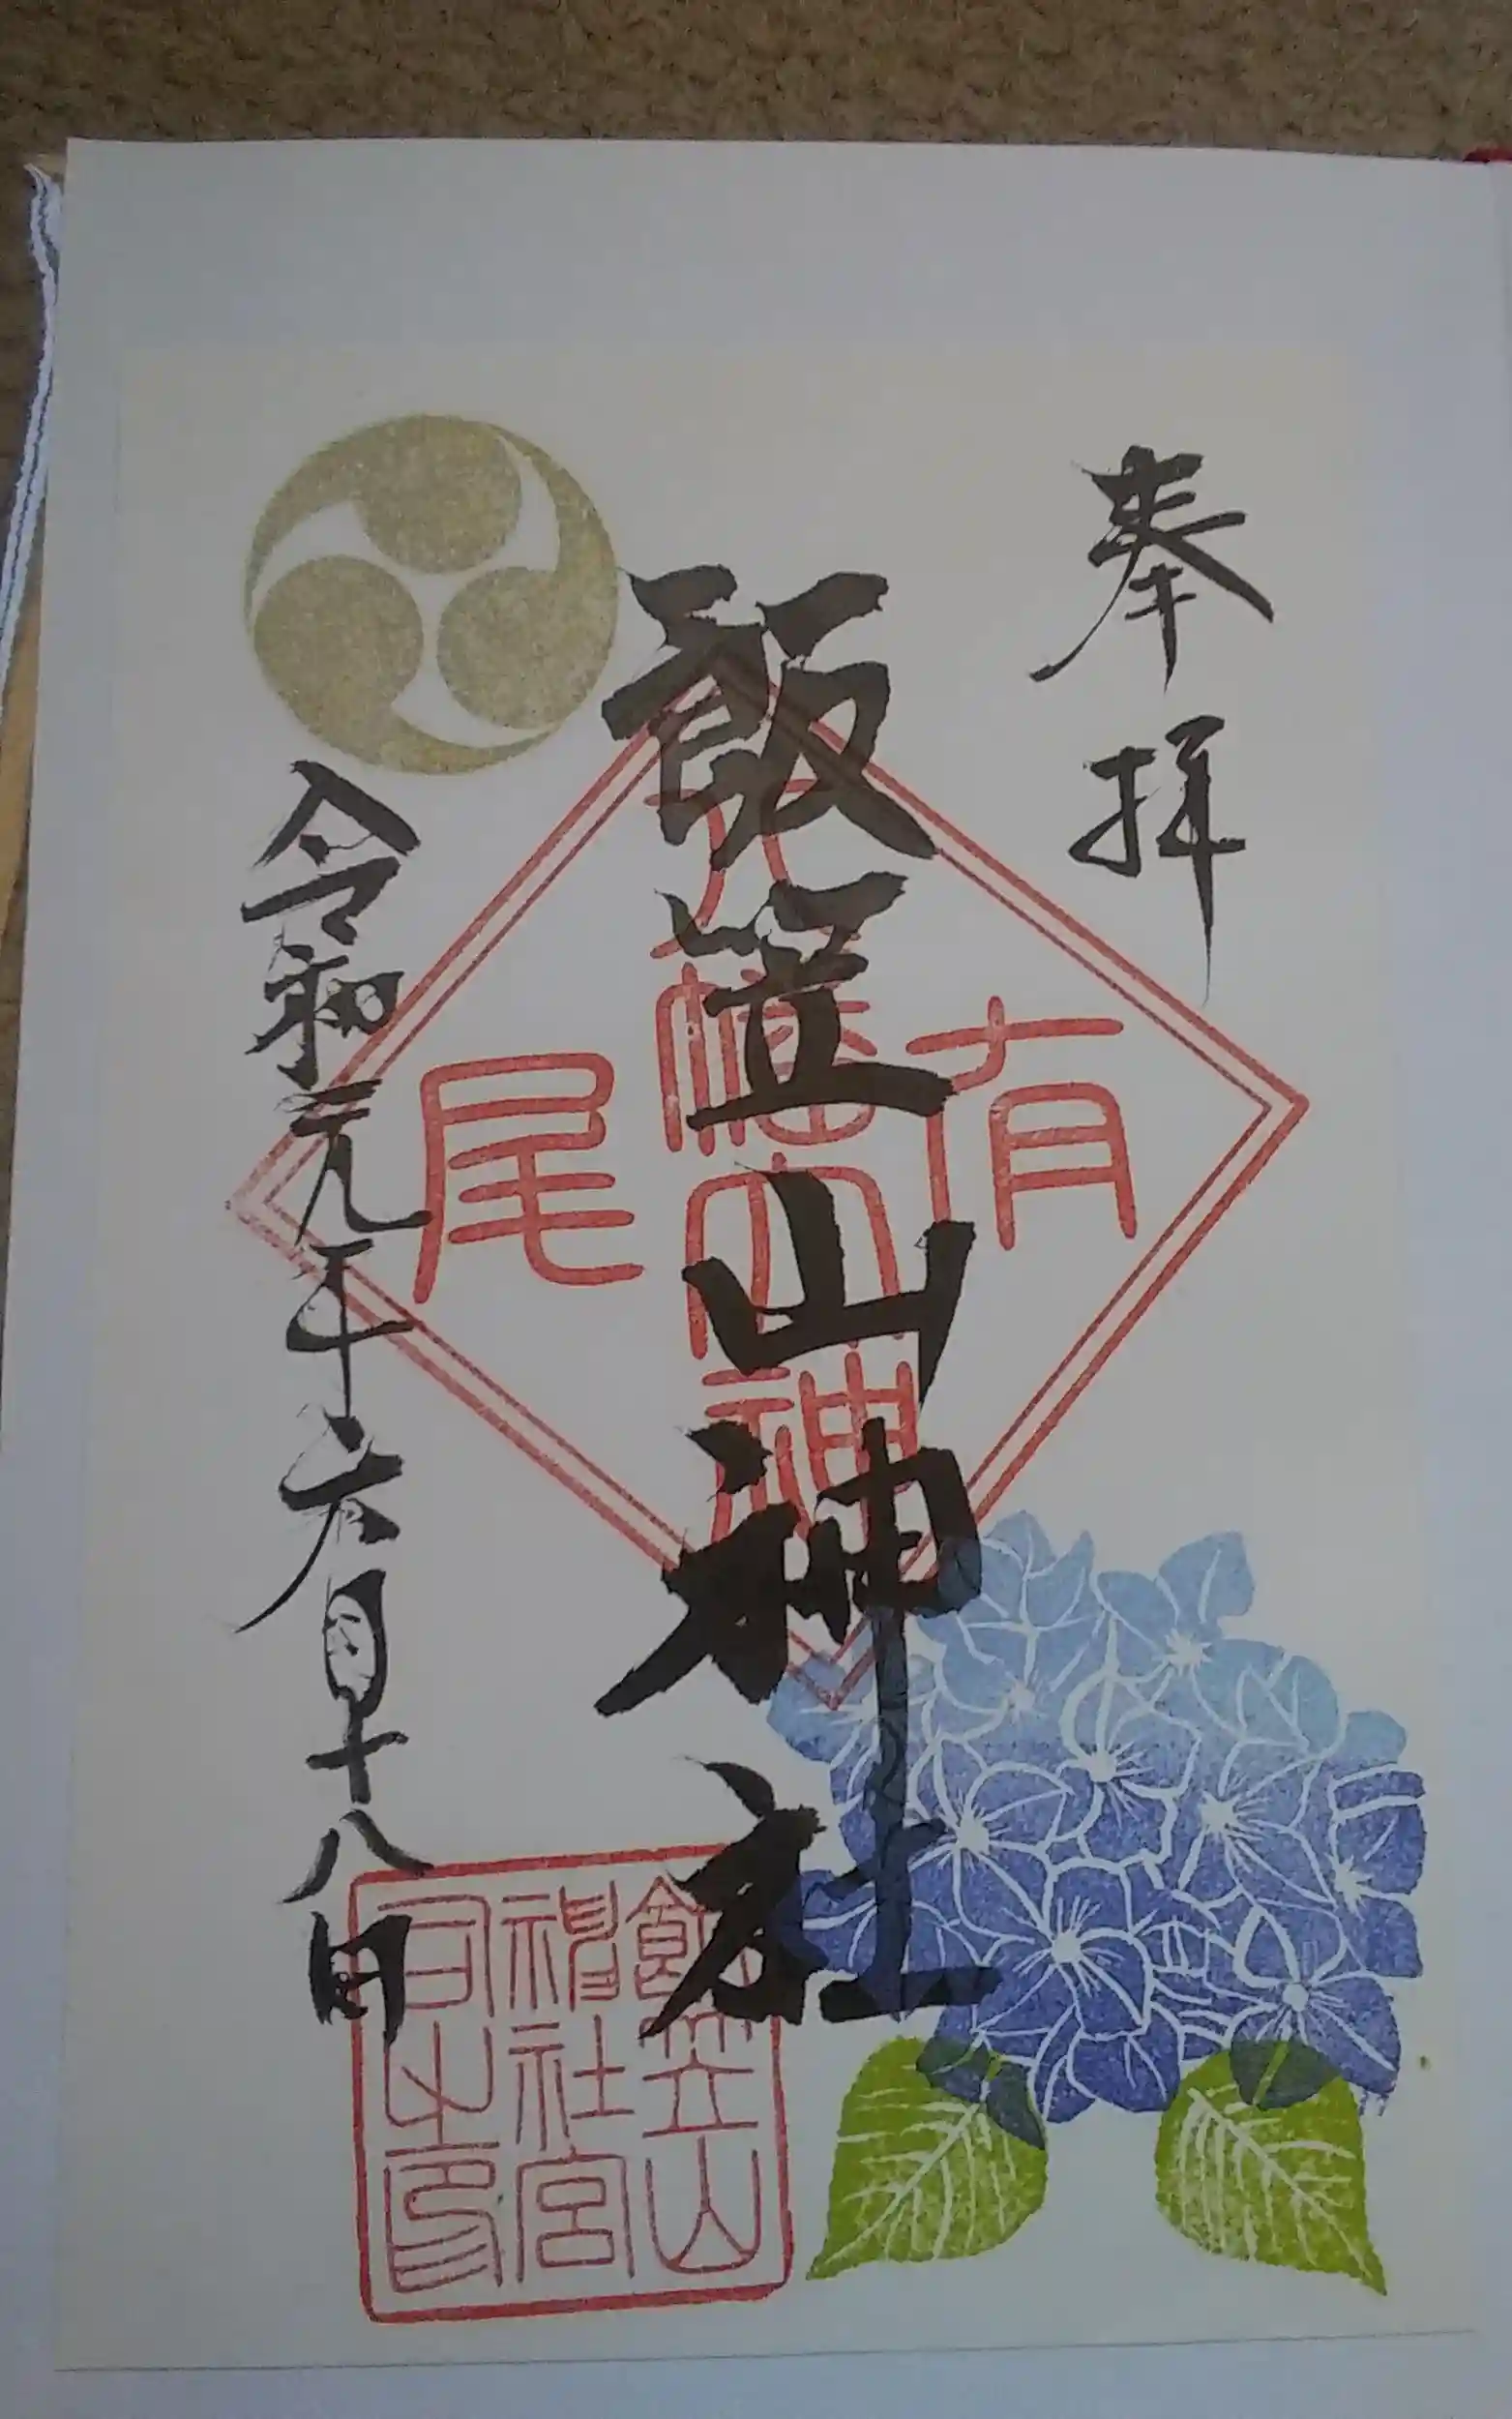 奉拝
飯笠山神社
令和元年六月十八日
有尾
八幡大神
飯笠山
神社宮
司之印